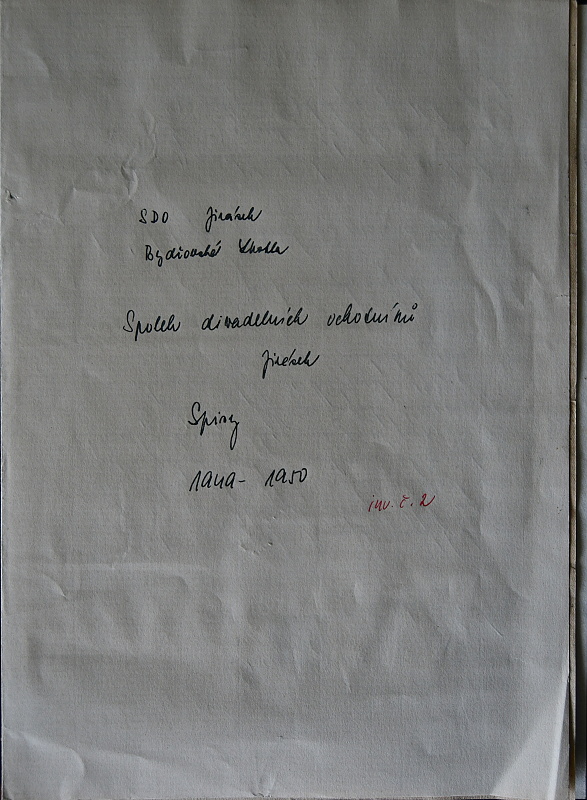 SDO Jirásek
Bydžovská Lhotka
Spolek divadelních ochotníků
Jirásek
Spisy
1949 - 1950
inv. č. 2